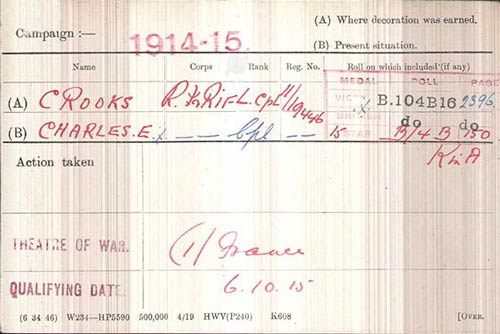 Campaign :— 1914-15.
(A) Where decoration was earned.
(B) Present situation.
Name Corps Rank Reg. No. Roll on which included (if any)
MEDAL ROLL PAGE
(A) CROOKS R. Ir RIF L.Cpl 11/19446 VICTORY B.104B16 2396
(B) CHARLES.E. — — Cpl — — BRITISH do do
15 STAR B/4 B 150
K in A
Action taken
THEATRE OF WAR. (1) France
QUALIFYING DATE. 6.10.15
(6 34 46) W234—HP5590 500,000 4/19 HWV(P240) K608 [OVER.